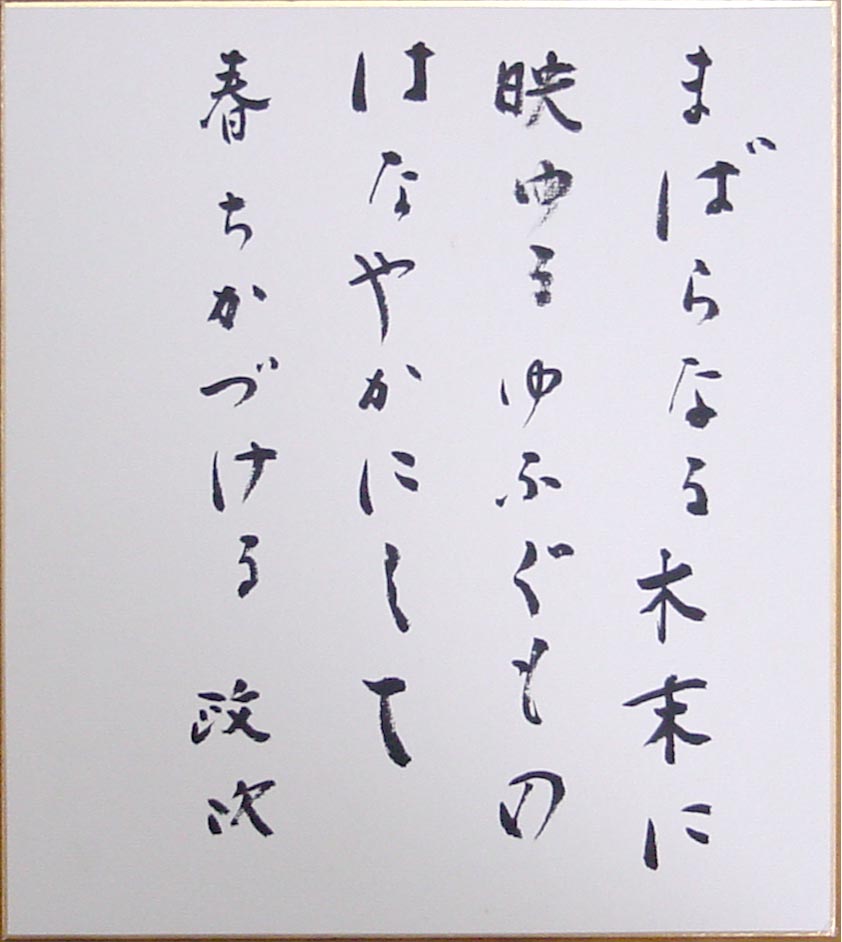 まばらなる木末に
映ゆるゆふぐもの
はなやかにして
春ちかづける 政次